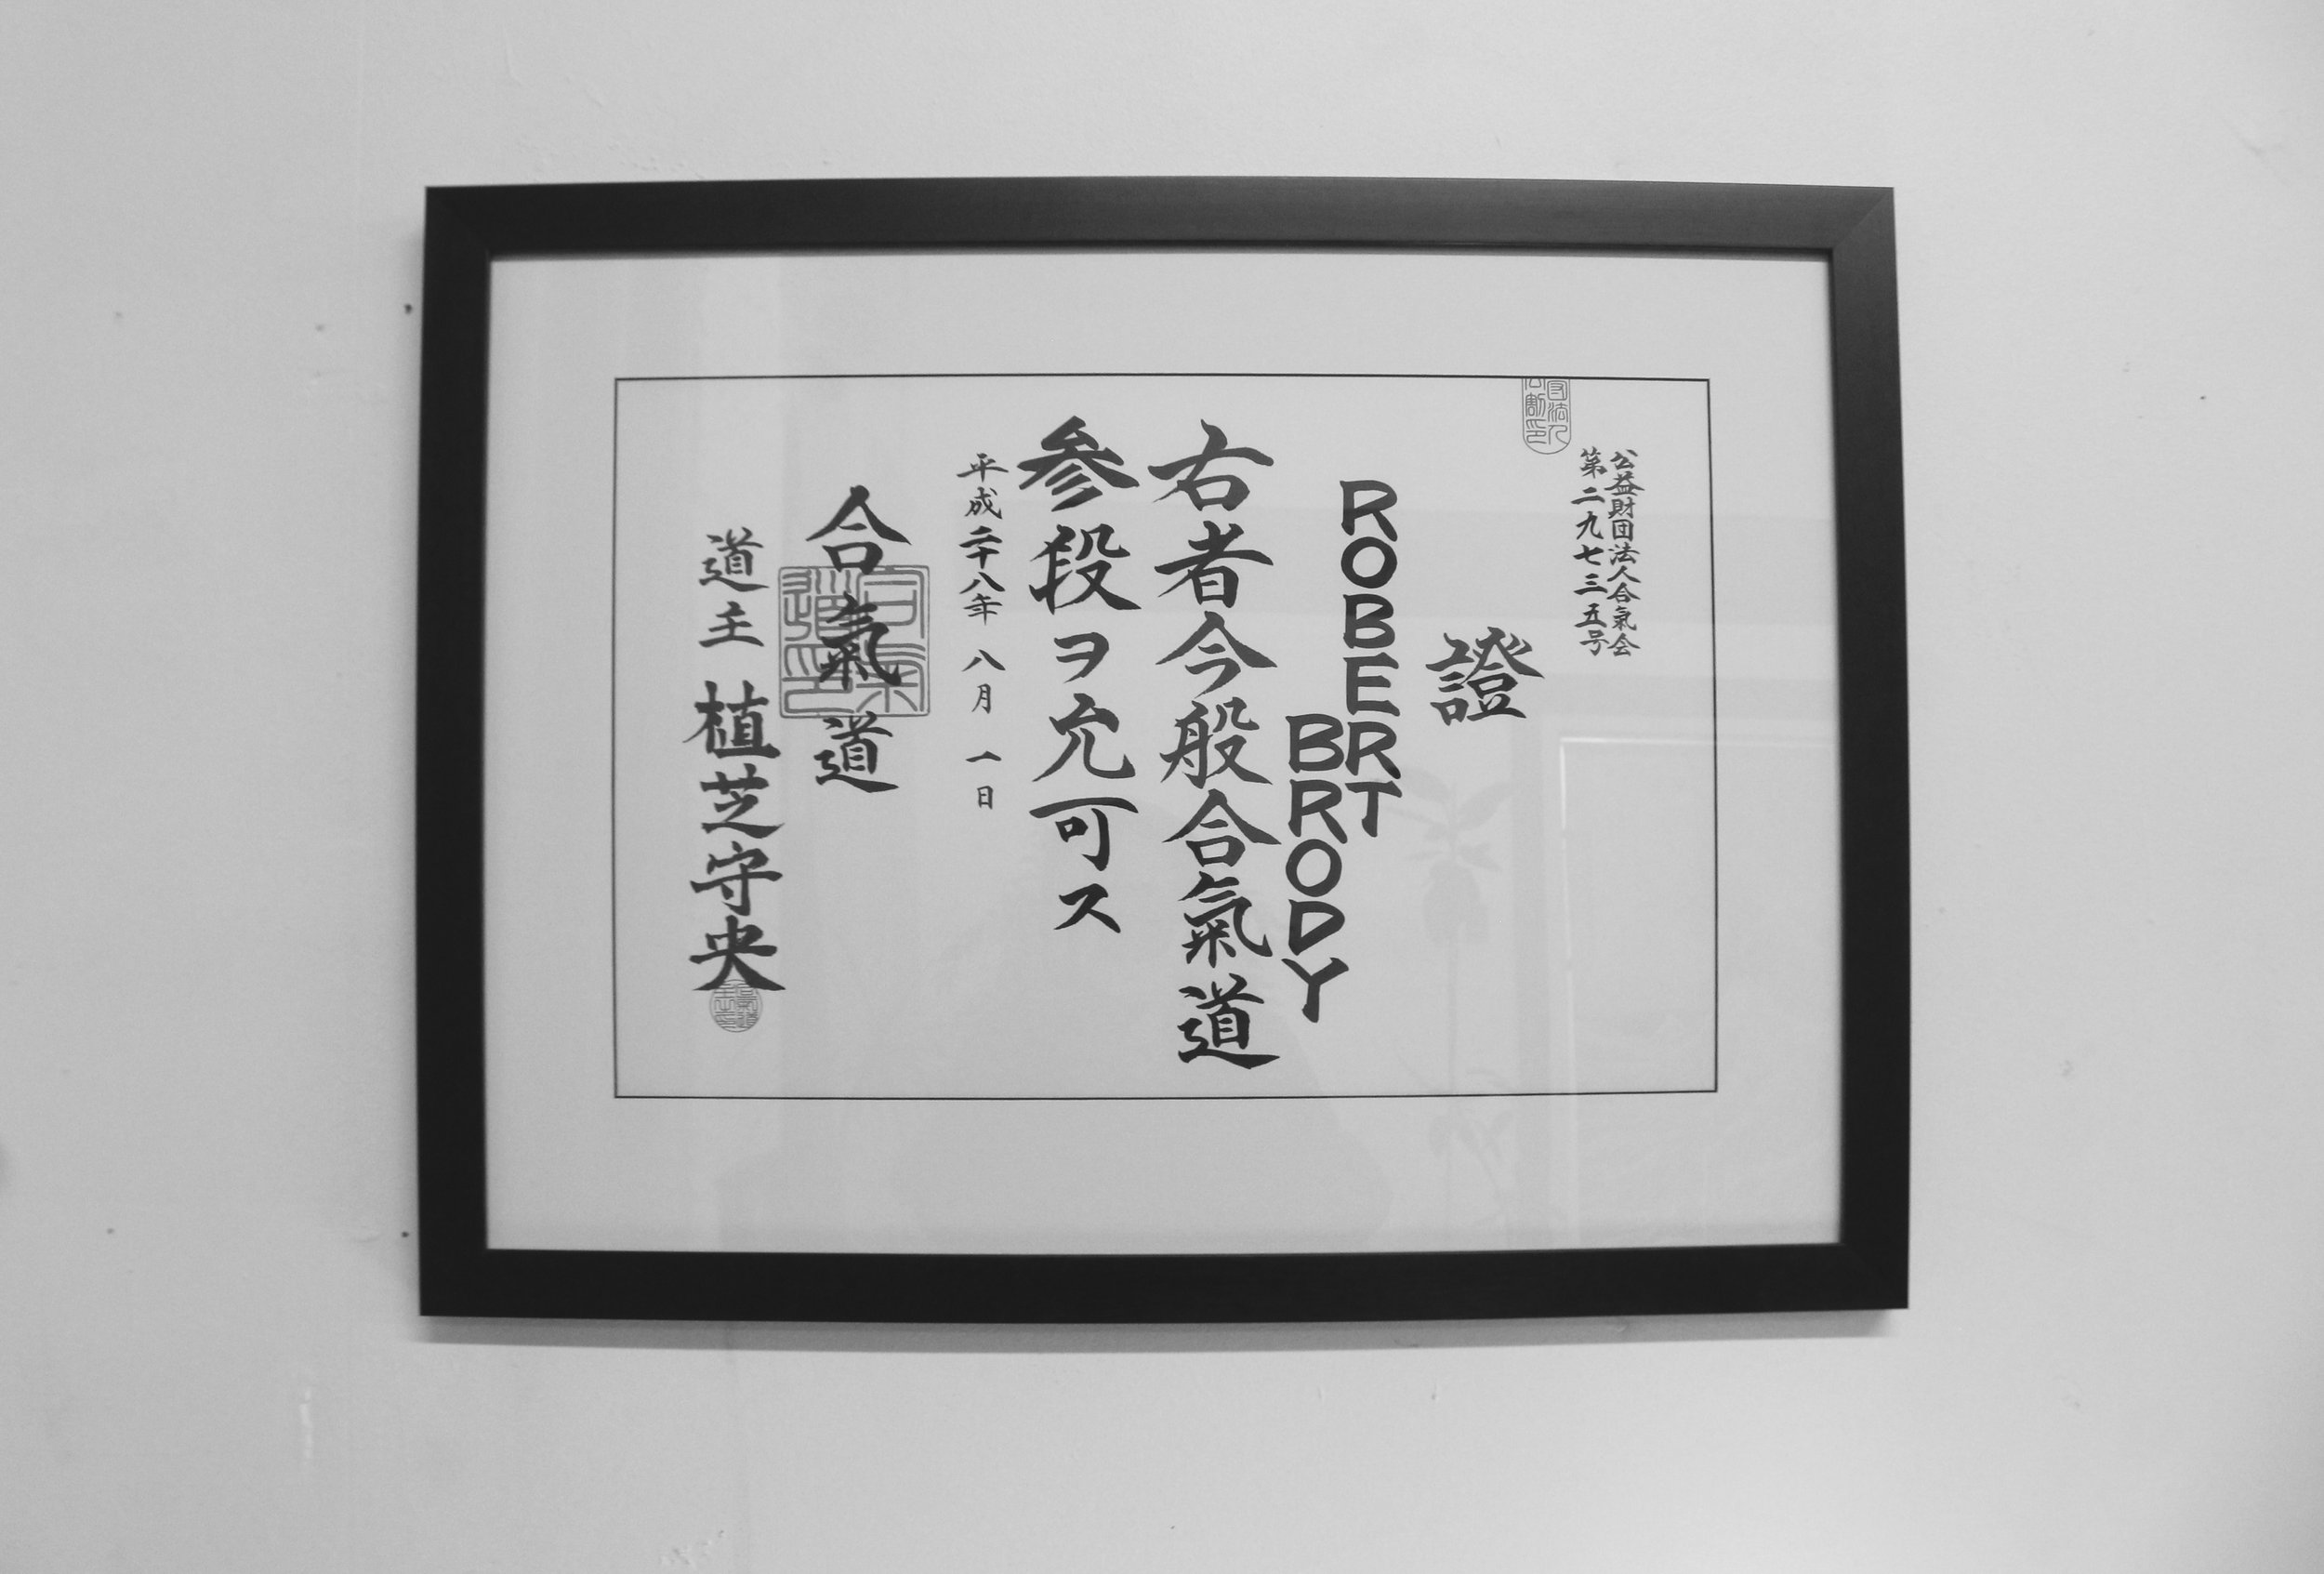 公益財団法人合氣会
第二九七三五号
證
ROBERT
BRODY
右者今般合氣道
参段ヲ允可ス
平成二十八年 八月 一日
合氣道
道主 植芝守央